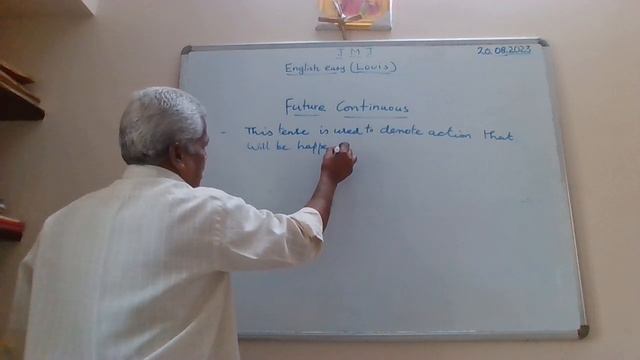 J M J
20.08.2023
English easy (Louis)
Future Continuous
- This tense is used to denote action that
will be happe